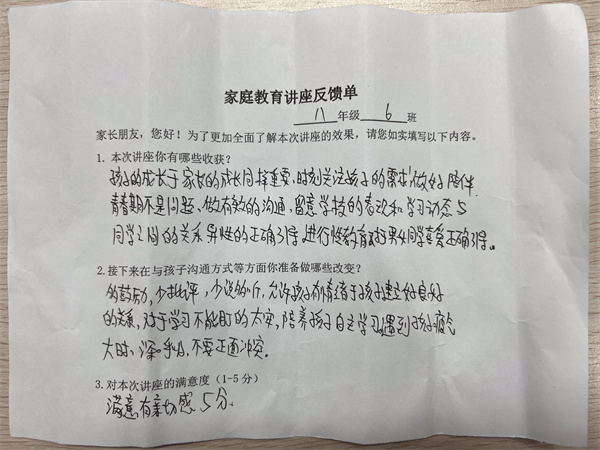 家庭教育讲座反馈单
八年级 6 班
家长朋友,您好!为了更加全面了解本次讲座的效果,请您如实填写以下内容。
1. 本次讲座你有哪些收获?
孩子的成长于家长的成长同样重要,时刻关注孩子的需求,做好陪伴
青春期不是问题、做有效的沟通,留意学校的表现和学习动态与
同学之间的关系 异性的正确引导,进行性教育 男女同学喜爱正确引导。
2. 接下来在与孩子沟通方式等方面你准备做哪些改变?
多鼓励,少批评,少说多听,允许孩子有情绪于孩子建立好良好
的关系,对于学习不能盯的太实,陪养孩子自主学习遇到孩子
大时、深呼吸,不要正面冲突。
3. 对本次讲座的满意度(1-5 分)
满意有亲切感 5分。